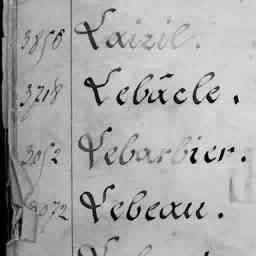 3858 Laizil.
3718 Lebâcle.
3052 Lebarbier.
3972 Lebeau.